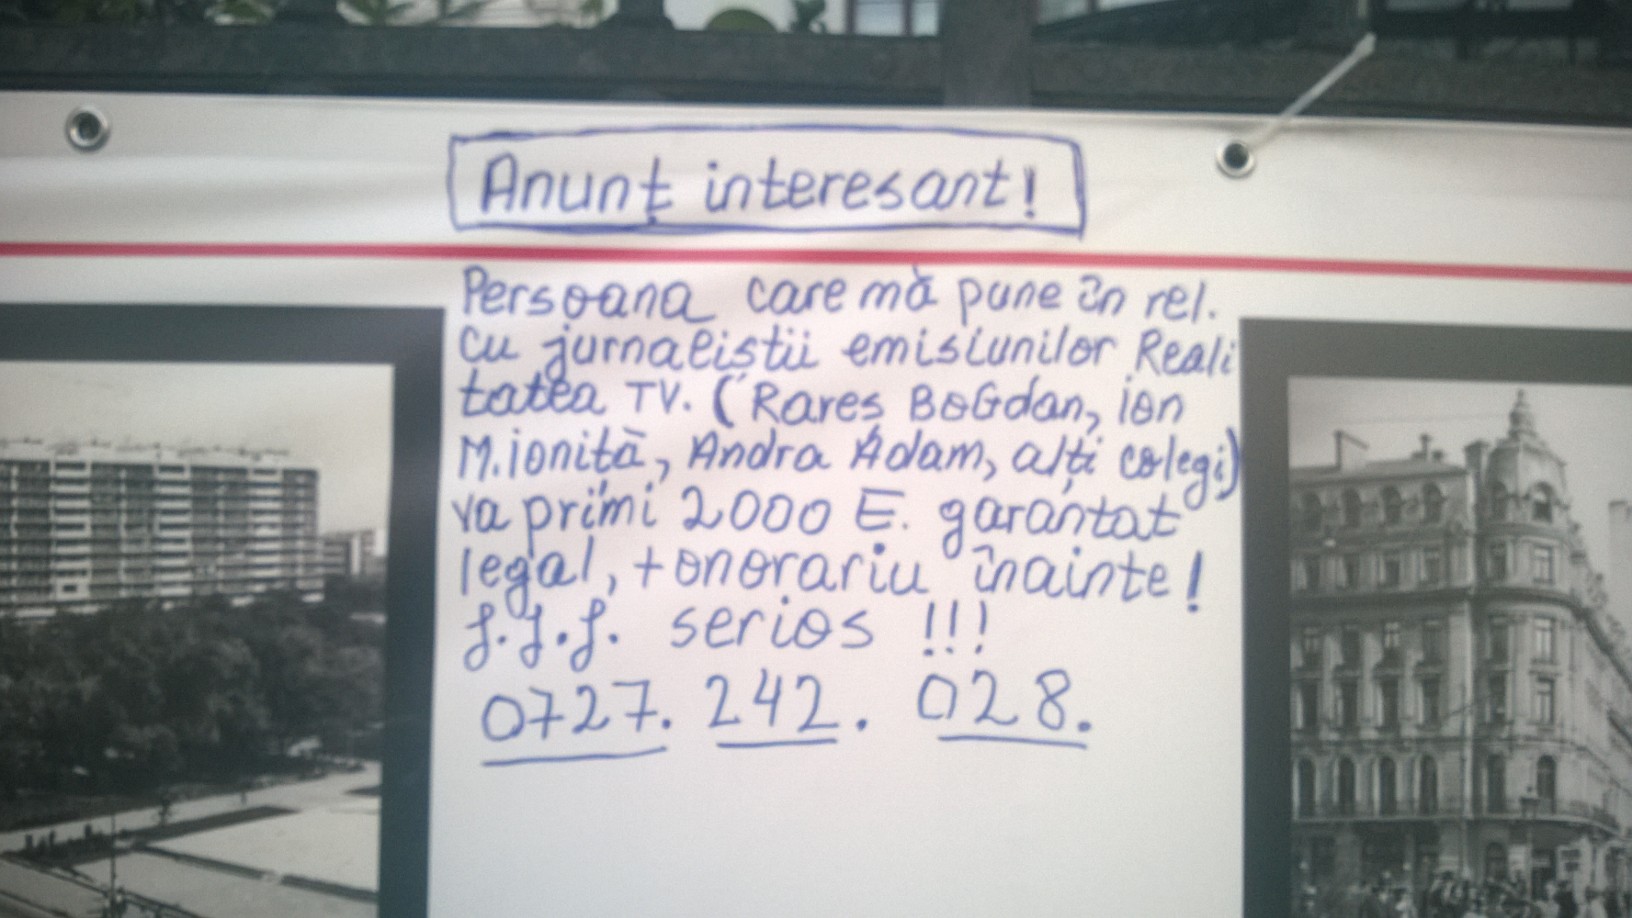 Anunț interesant!
Persoana care mă pune în rel.
cu jurnaliștii emisiunilor Reali
tatea TV. (Rareș BoGdan, ion
M.ioniță, Andra Adam, alți colegi)
va primi 2000 E. garantat
legal, + onorariu înainte!
f.f.f. serios !!!
0727. 242. 028.